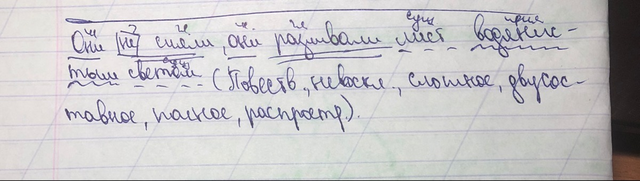 Они не спали, они разливали лист водянис-
тым светом (Повеств., невоскл., сложное, двусос-
тавное, полное, распростр.).